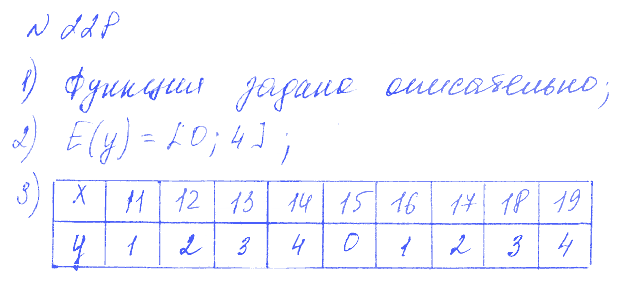 № 228
1) Функция задана описательно;
2) E(y) = [0; 4];
3) x 11 12 13 14 15 16 17 18 19
y 1 2 3 4 0 1 2 3 4